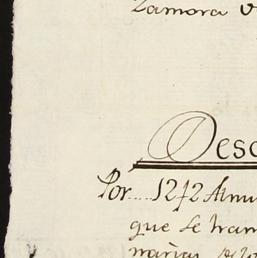 Zamora
Desc
Por 1272 Almu
que se tram